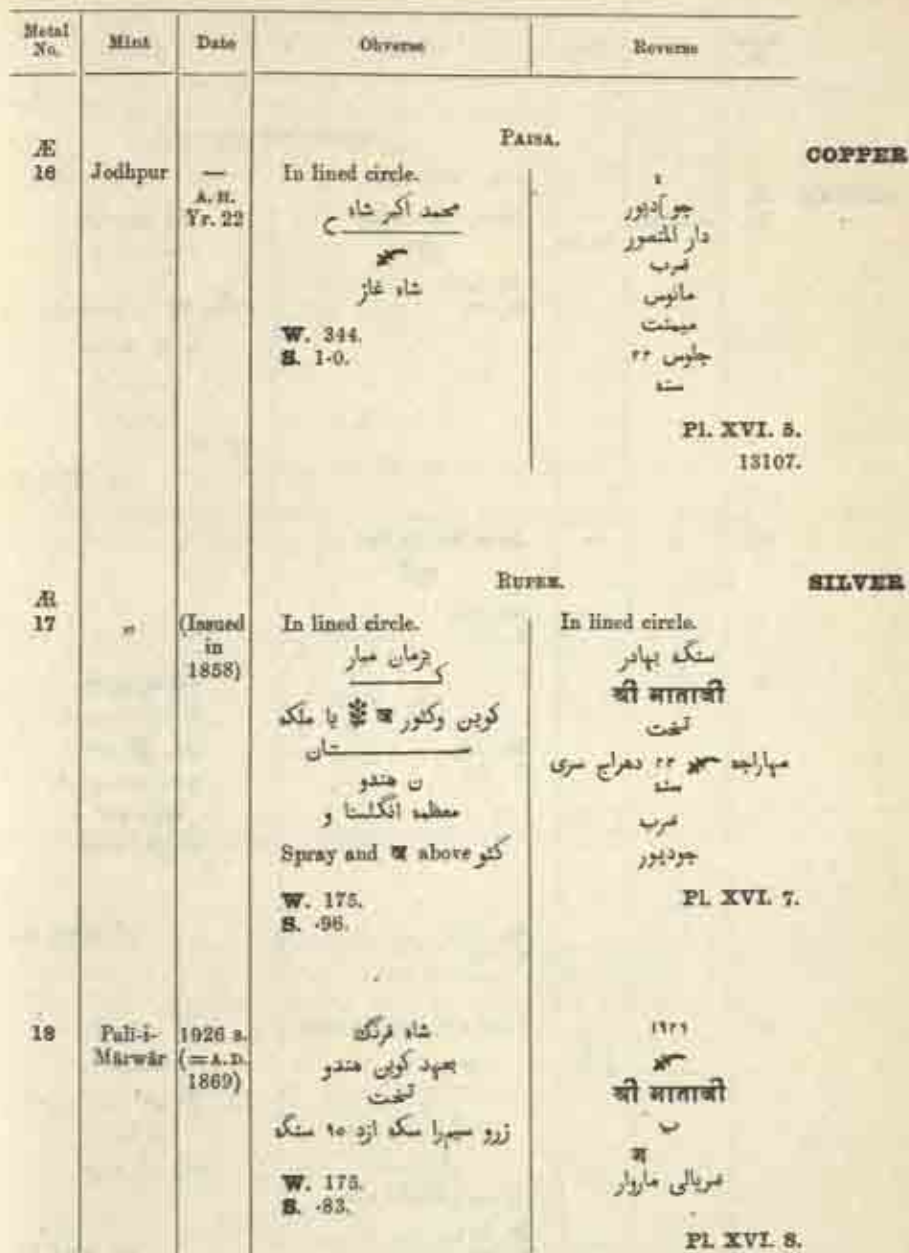 Metal No. Mint Date Obverse Reverse
PAISA.
COPPER
Æ
16 Jodhpur —
A. H.
Yr. 22
In lined circle.
محمد اکبر شاه
شاه غاز
W. 344.
S. 1·0.
جو]دپور
دار المنصور
ضرب
مانوس
میمنت
جلوس ۲۲
سنة
Pl. XVI. 5.
13107.
RUPEE.
SILVER
Æ
17 „ (Issued in 1858)
In lined circle.
بزمان مبار
ک
کوین وکتور श्र یا ملکه
ستان
ن هندو
معظمه انگلستا و
Spray and श्र above کتو
W. 175.
S. ·96.
In lined circle.
سنگه بهادر
श्री माताजी
تخت
مهاراجه ۲۲ دهراج سری
سنة
ضرب
جودپور
Pl. XVI. 7.
18 Pali-i-Mārwār 1926 s.
(=A.D. 1869)
شاه فرنگ
بعهد کوین هندو
تخت
زرو سیمرا سکه ازد ۹۵ سنگه
W. 175.
S. ·83.
۱۹۲۶
श्री माताजी
ب
म
ضرپالی ماروار
Pl. XVI. 8.